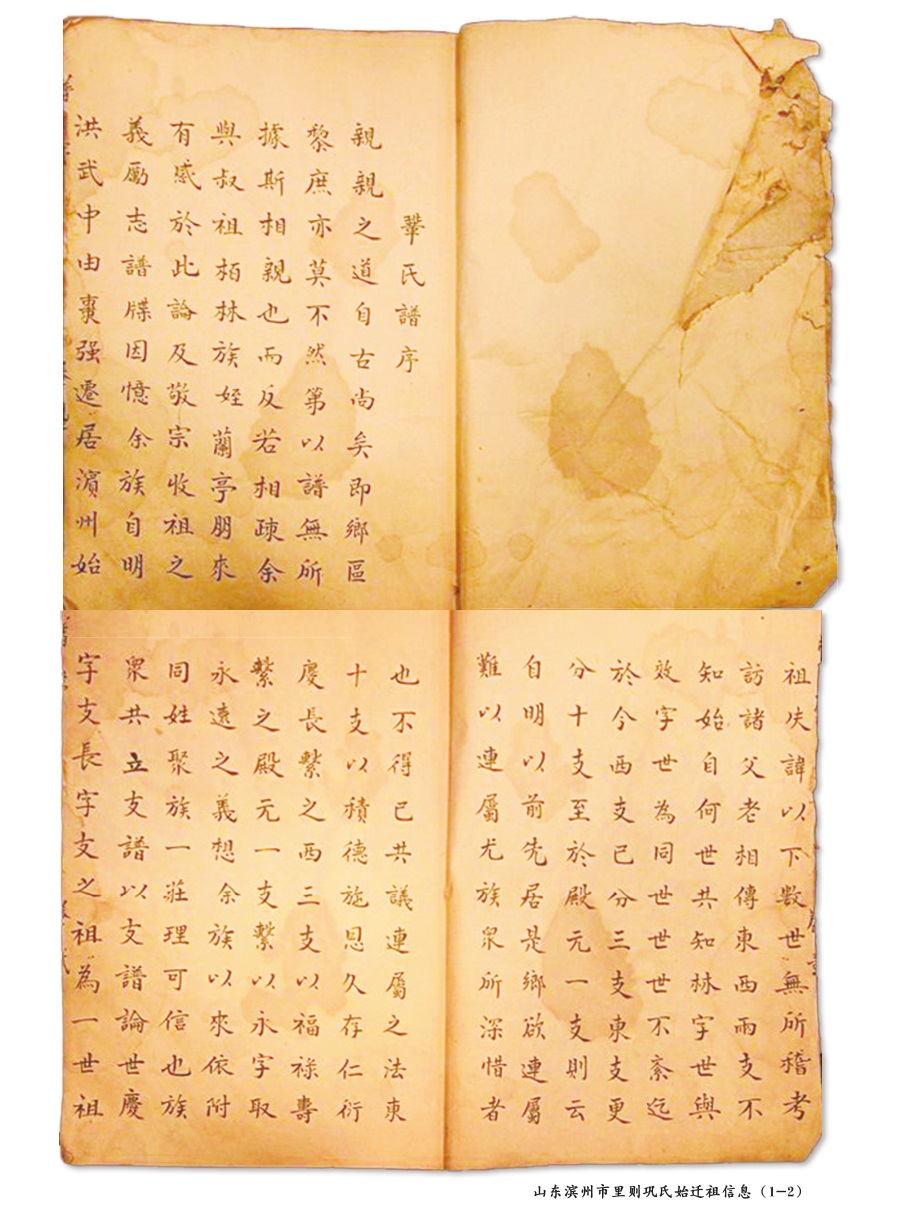 鞏氏譜序
親親之道自古尚矣即鄉區
黎庶亦莫不然第以譜無所
據斯相親也而反若相疎余
與叔祖栢林族姪蘭亭朋來
有感於此論及敬宗收祖之
義勵志譜牒因憶余族自明
洪武中由棗强遷居濱州始
祖失諱以下數世無所稽考
訪諸父老相傳東西兩支不
知始自何世共知林字世與
效字世為同世世世不紊迄
於今西支已分三支東支更
分十支至於殿元一支則云
自明以前先居是鄉欲連屬
難以連屬尤族衆所深惜者
也不得已共議連屬之法東
十支以積德施恩久存仁衍
慶長繫之西三支以福祿壽
繫之殿元一支繫以永字取
永遠之義想余族以來依附
同姓聚族一莊理可信也族
衆共立支譜以支譜論世慶
字支長字支之祖為一世祖
山东滨州市里则巩氏始迁祖信息（1—2）